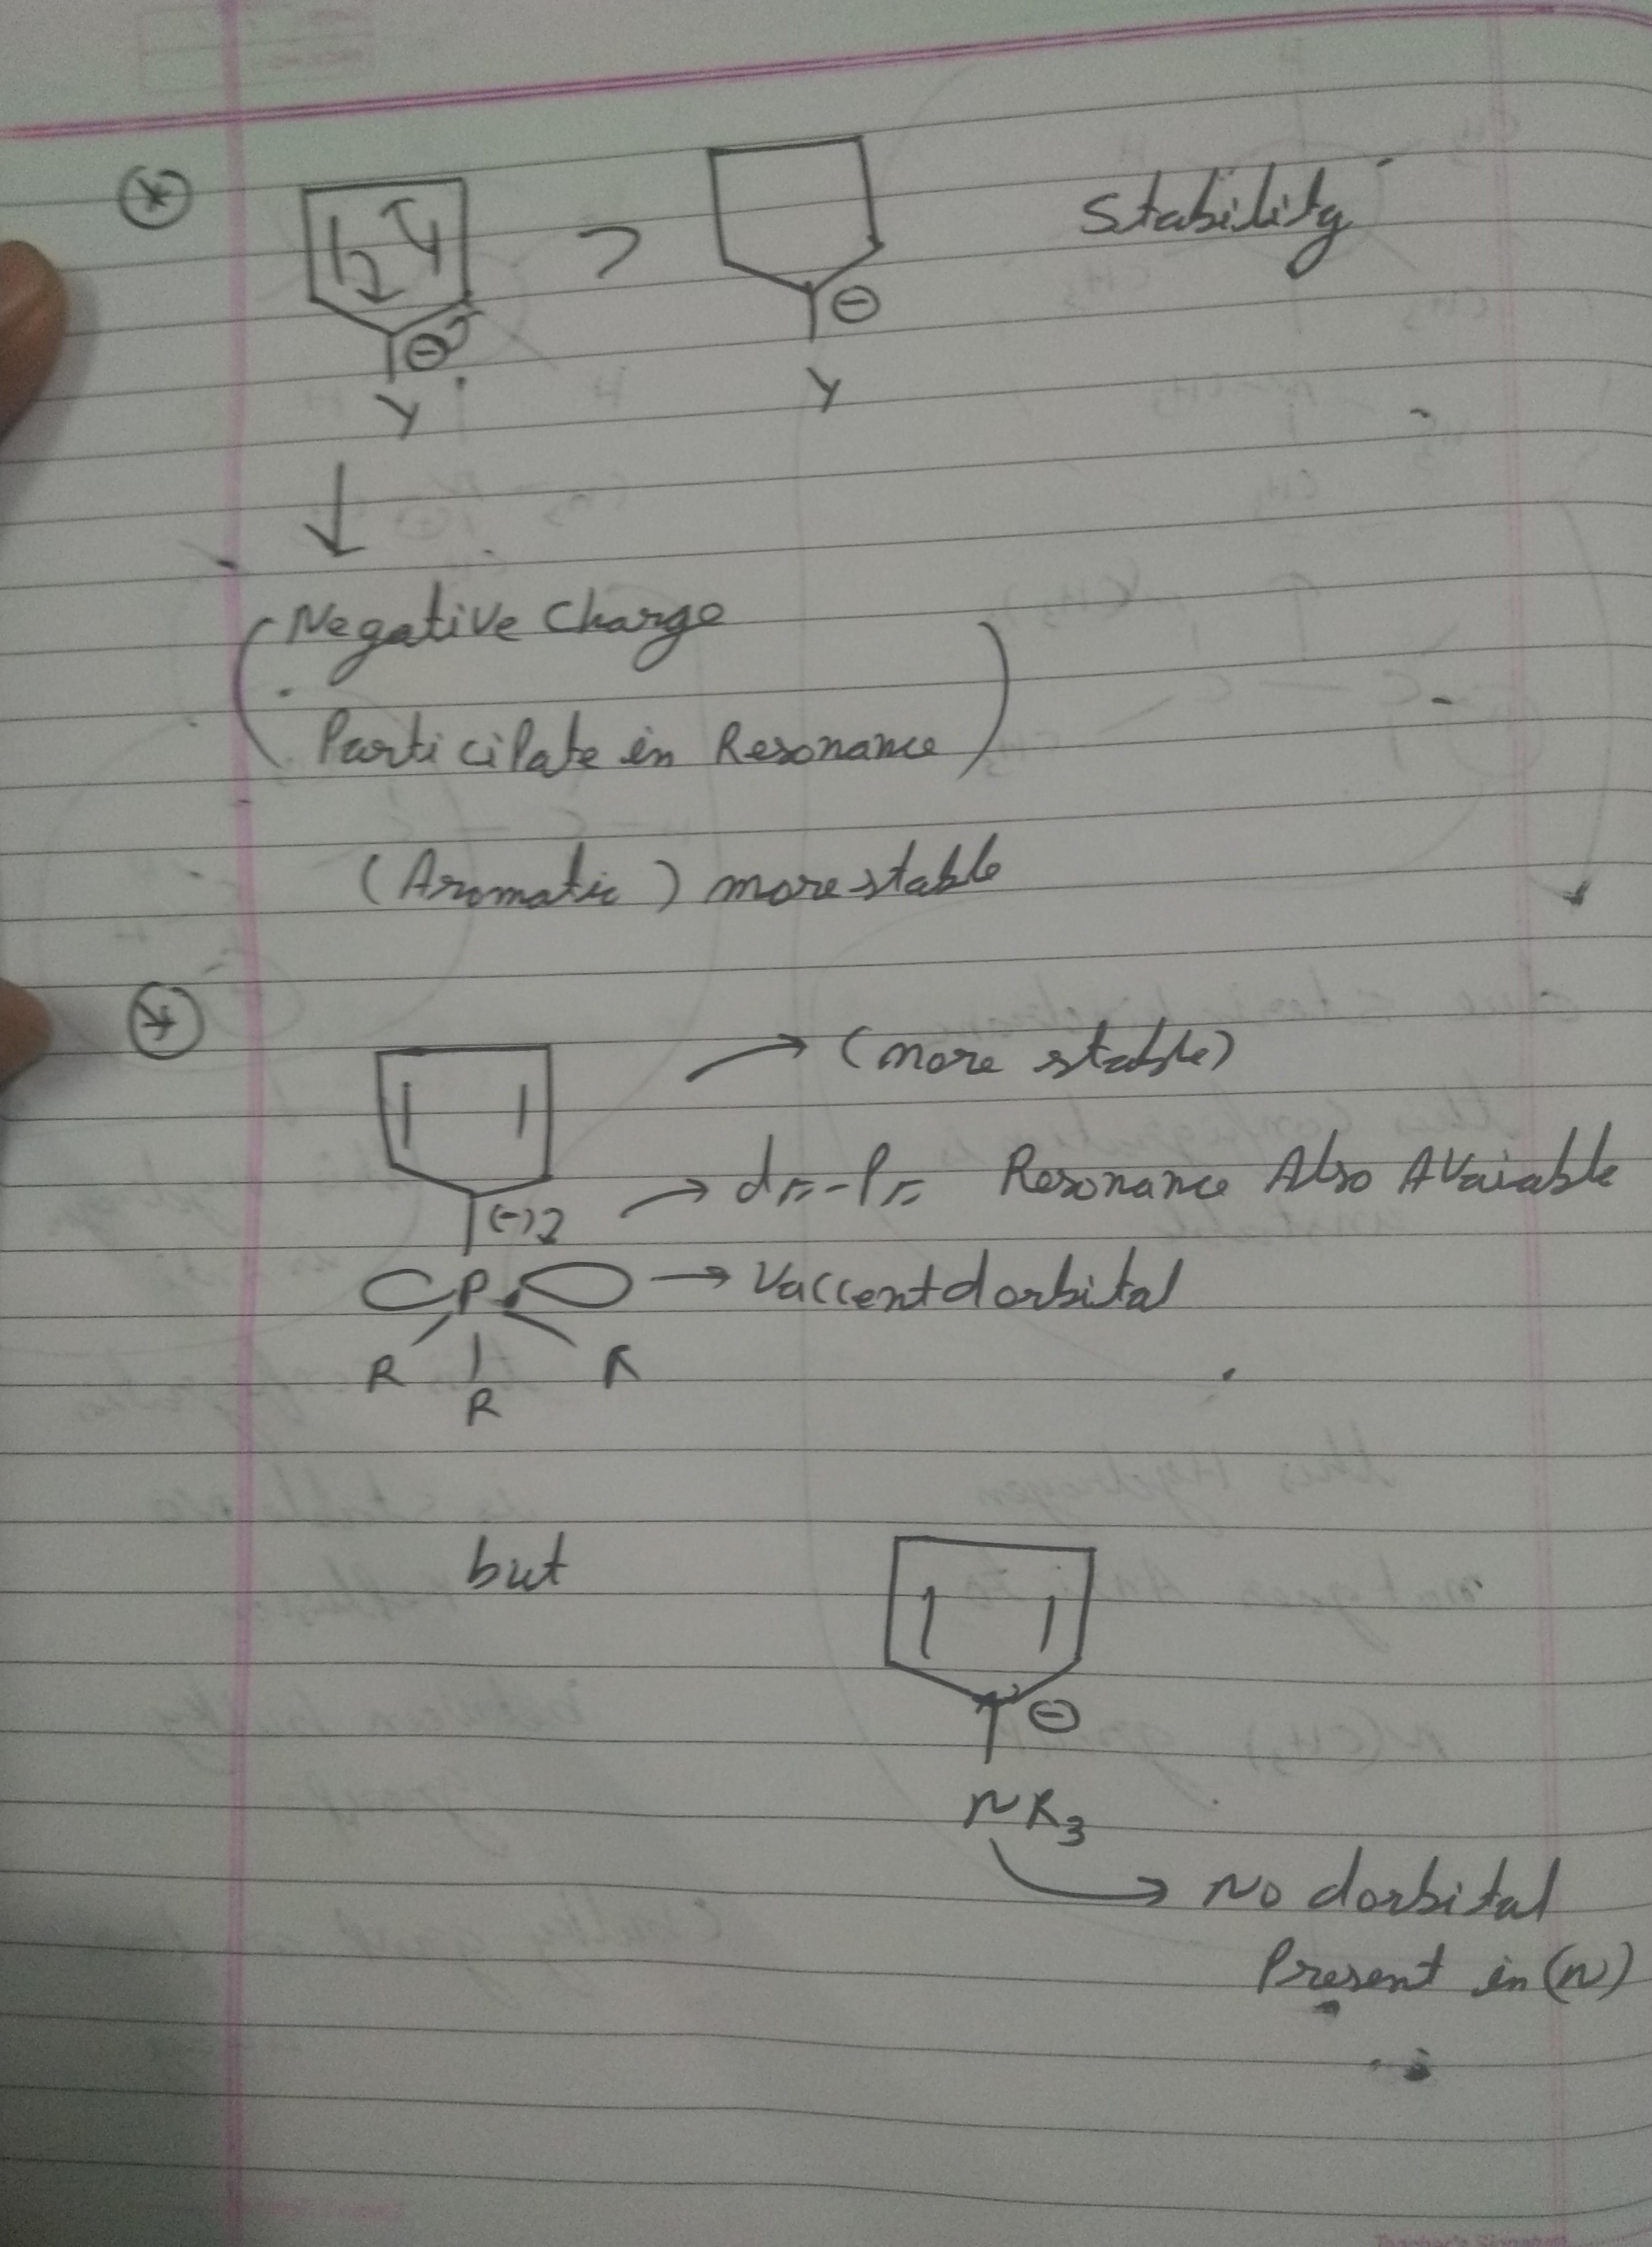 Stability
>
⊖
⊖
Y
Y
Negative Charge
Participate in Resonance
(Aromatic) more stable
(more stable)
(-)
dπ-Pπ Resonance Also Avaiable
P
Vaccent d orbital
R R
R
but
⊖
NR3
No dorbital
Present in (N)